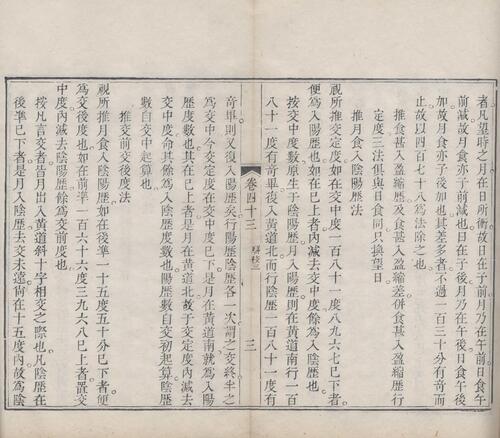 者凡望時之月在日所衝故日在子前月乃在午前日食午
前減故月食亦子前減也日在子後月乃在午後日食午後
加故月食亦子後加也其差多者不過一百三十分有奇而
止故以四百七十八爲法除之也
推食甚入盈縮歷及食甚入盈縮差併食甚入盈縮歷行
定度三法俱與日食同只換望日
推月食入陰陽歷法
視所推交定度如在交中度一百八十一度八九六七已下者
便爲入陽歷也如在已上者內減去交中度餘爲入陰歷也
按交中度數原生于陰陽歷月入陽歷則在黃道南行一百
八十一度有奇畢後入黃道北而行陰歷一百八十一度有
卷四十三
三
奇畢則又復入陽歷矣行陽歷陰歷各一次謂之交終半之
爲交中今交定度在交中度已下是月在黃道南就爲入陽
歷度數也其在已上者是月在黃道北故于交定度內減去
交中度命其餘爲入陰歷度數也陽歷數自交初起算陰歷
數自交中起算也
推交前交後度法
視所推月食入陰陽歷如在後準一十五度五十分已下者便
爲交後度也如在前準一百六十六度三九六八已上者置交
中度內減去陰陽歷餘爲交前度也
按凡言交者皆月出入黃道斜十字相交之際也凡陰歷在
後準已下者是月入陰歷去交未遠尙在十五度內故爲陰